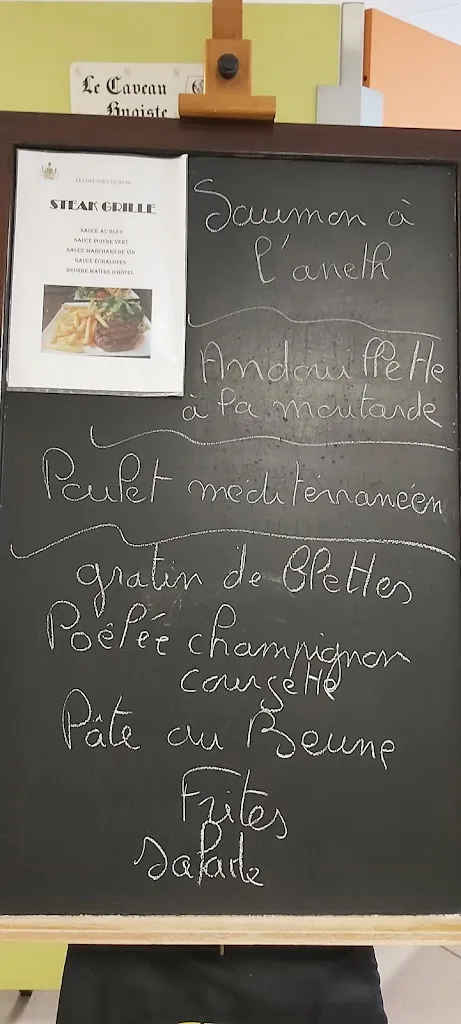 Le Caveau
Bugiste
STEAK GRILLE
SAUCE AU BLEU
SAUCE POIVRE VERT
SAUCE MARCHAND DE VIN
SAUCE ÉCHALOTES
BEURRE MAÎTRE D'HÔTEL
Saumon à
l'aneth
Andouillette
à la moutarde
Poulet méditérranéen
gratin de Blettes
Poêlée champignon
courgette
Pâte au Beurre
Frites
Salade